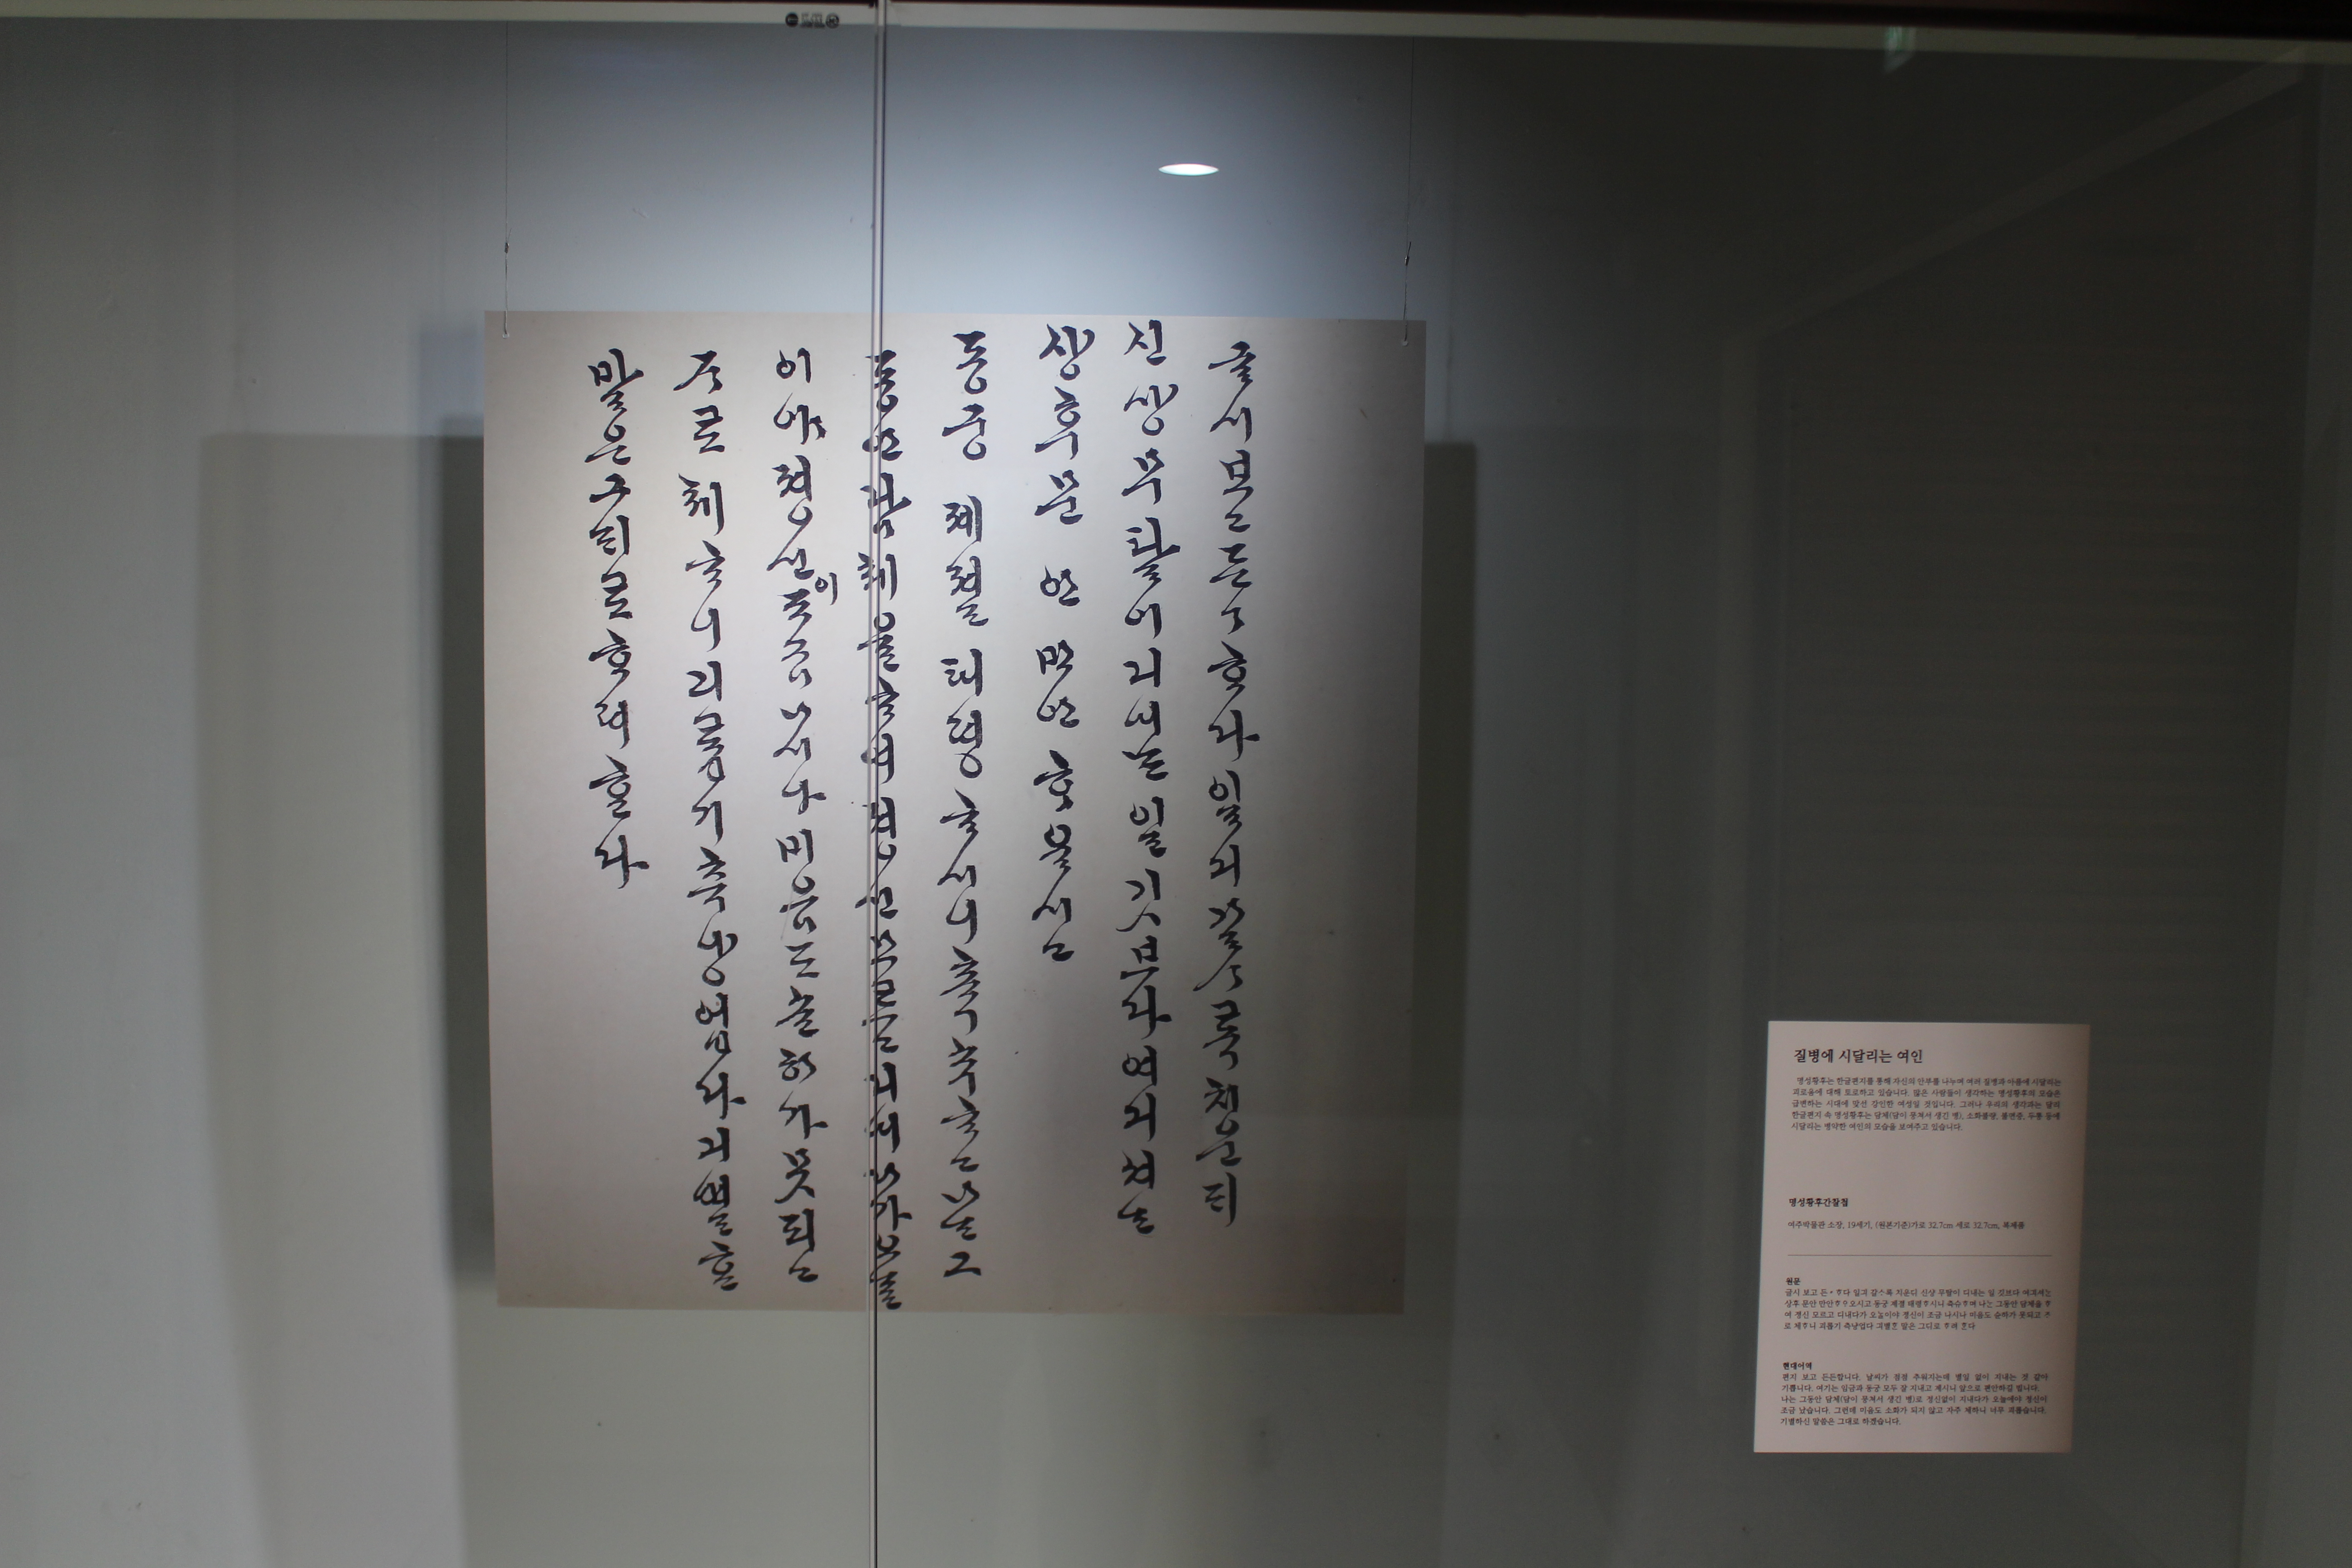 글시보고든〻ᄒᆞ다일긔갈ᄉᆞ록치운ᄃᆡ
신샹무탈이디내는일깃브다여긔셔는
샹후문안만안ᄒᆞ오시고
동궁 졔졀 태평ᄒᆞ시니축슈ᄒᆞ고나는그
동안담체를ᄒᆞ여졍신모르고디내다가오늘
이야졍신이죠금나시나미음도슌하가못되고
ᄌᆞ로체ᄒᆞ니괴롭기측냥업다긔별ᄒᆞᆫ
말은그ᄃᆡ로ᄒᆞ려ᄒᆞᆫ다
질병에 시달리는 여인
명성황후는 한글편지를 통해 자신의 안부를 나누며 여러 질병과 아픔에 시달리는
괴로움에 대해 토로하고 있습니다. 많은 사람들이 생각하는 명성황후의 모습은
급변하는 시대에 맞선 강인한 여성일 것입니다. 그러나 우리의 생각과는 달리
한글편지 속 명성황후는 담체(담이 뭉쳐서 생긴 병), 소화불량, 불면증, 두통 등에
시달리는 병약한 여인의 모습을 보여주고 있습니다.
명성황후간찰첩
여주박물관 소장, 19세기, (원본기준)가로 32.7cm 세로 32.7cm, 복제품
원문
글시 보고 든〻ᄒᆞ다 일긔 갈ᄉᆞ록 치운디 신샹 무탈이 디내는 일 깃브다 여긔셔는
상후 문안 만안ᄒᆞ오시고 동궁 제졀 태평ᄒᆞ시니 축슈ᄒᆞ며 나는 그동안 담체을 ᄒᆞ
여 정신 모르고 디내다가 오늘이야 정신이 조금 나시나 미음도 슌하가 못되고 ᄌᆞ
로 체ᄒᆞ니 괴롭기 측냥업다 긔별ᄒᆞᆫ 말은 그디로 ᄒᆞ려 ᄒᆞᆫ다
현대어역
편지 보고 든든합니다. 날씨가 점점 추워지는데 별일 없이 지내는 것 같아
기쁩니다. 여기는 임금과 동궁 모두 잘 지내고 계시니 앞으로 편안하길 빕니다.
나는 그동안 담체(담이 뭉쳐서 생긴 병)로 정신없이 지내다가 오늘에야 정신이
조금 났습니다. 그런데 미음도 소화가 되지 않고 자주 체하니 너무 괴롭습니다.
기별하신 말씀은 그대로 하겠습니다.